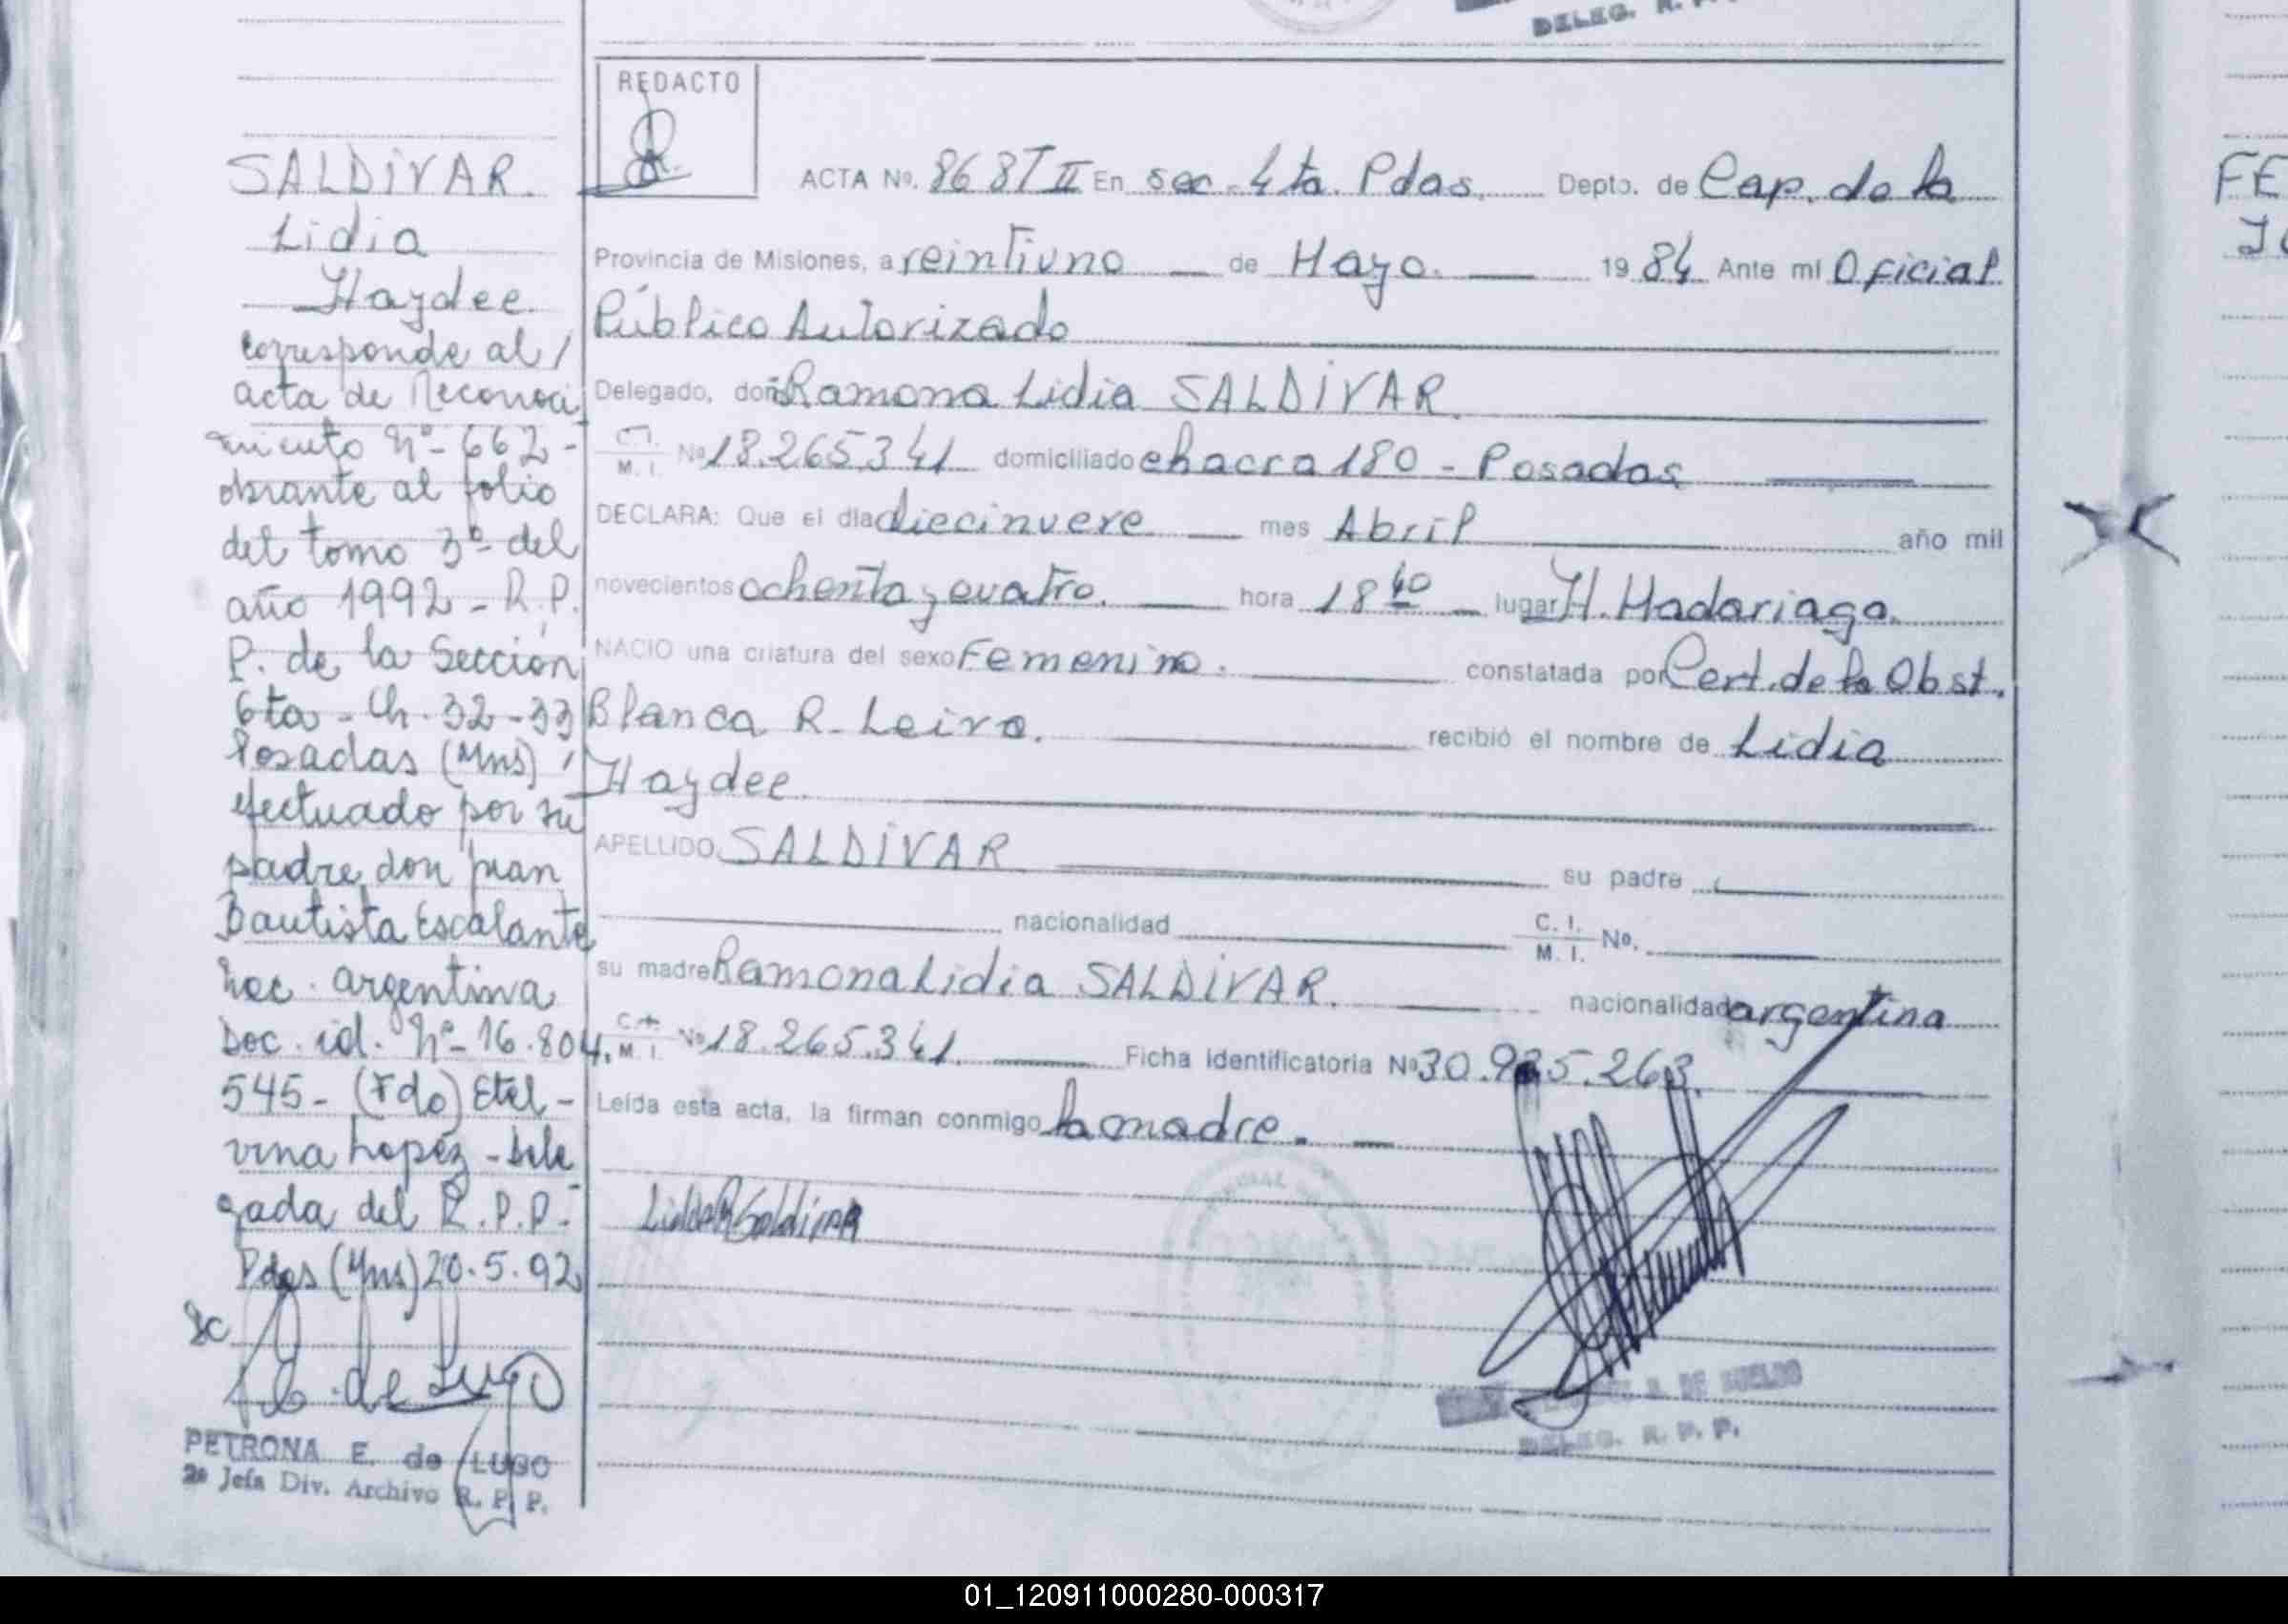 DELEG. R. P.
SALDIVAR.
Lidia
Haydee.
corresponde al /
acta de Reconoci
miento Nº 662 -
obrante al folio
del tomo 3º del
año 1992 - R.P.
P. de la Sección
6ta - Ch. 32-33
Posadas (Mns) /
efectuado por su
padre don Juan
Bautista Escalante
Nac. argentina
Doc. id. Nº 16.804.
545 - (Fdo) Etel-
vina Lopez - Dele
gada del R.P.P.-
Pdas (Mns) 20.5.92
Sc
P.E. de Lugo
PETRONA E. de LUGO
2ª Jefa Div. Archivo R. P. P.
REDACTO
ACTA Nº. 868 T II En sec. 4ta. Pdas. Depto. de Cap. de la
Provincia de Misiones, a veintiuno de Mayo. 1984 Ante mí Oficial
Público Autorizado
Delegado, doña Ramona Lidia SALDIVAR.
C.I. M. I. Nº 18.265.341 domiciliado chacra 180 - Posadas
DECLARA: Que el día diecinueve mes Abril año mil
novecientos ochenta y cuatro. hora 18 40 lugar H. Madariaga.
NACIO una criatura del sexo Femenino. constatada por Cert. de la Obst.
Blanca R. Leiva. recibió el nombre de Lidia
Haydee.
APELLIDO SALDIVAR su padre
nacionalidad C. I. M. I. Nº.
su madre Ramona Lidia SALDIVAR. nacionalidad argentina
C.I. M. I. Nº 18.265.341. Ficha identificatoria Nº 30.985.263.
Leída esta acta, la firman conmigo la madre.
Lidia R Saldivar
DE SUELDO
DELEG. R. P. P.
FE
01_120911000280-000317